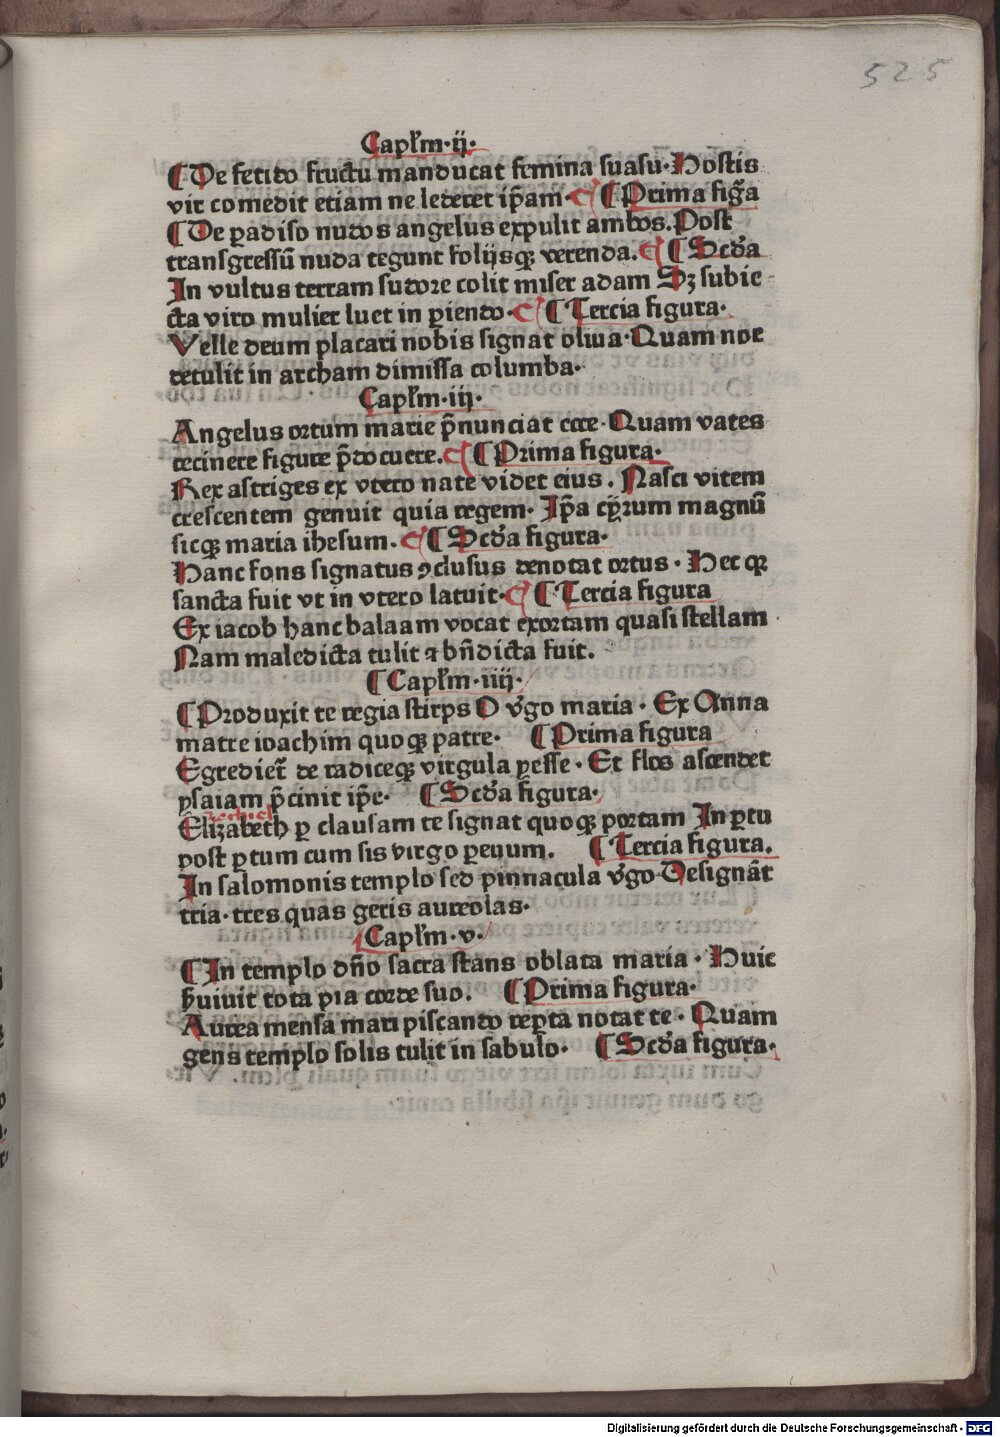 525
Capl̃m·ij·
¶ De fetido fructu manducat femina suasu· Hostis
vir comedit etiam ne lederet ip̃am· ¶ Prima fig̃a
¶ De ꝑadiso nudos angelus expulit ambos. Post
transgressũ nuda tegunt folijsqꝫ verenda. ¶ Scd̃a
In vultus terram sudore colit miser adam Sꝫ subie
cta viro mulier luet in ꝑiendo· ¶ Tercia figura·
Velle deum placari nobis signat oliua· Quam noe
detulit in archam dimissa columba·
Capl̃m·iij·
Angelus ortum marie p̃nunciat ecce· Quam vates
cecinere figure p̃docuere. ¶ Prima figura·
Rex astriges ex vtero nate videt eius. Nasci vitem
crescentem genuit quia regem· Ip̃a cyrum magnũ
sicqꝫ maria ihesum. ¶ Scd̃a figura·
Hanc fons signatus ꝯclusus denotat ortus· Hec qꝛ
sancta fuit vt in vtero latuit· ¶ Tercia figura
Ex iacob hanc balaam vocat exortam quasi stellam
Nam maledicta tulit ⁊ bñdicta fuit.
¶ Capl̃m·iiij·
¶ Produxit te regia stirps O v̉go maria· Ex Anna
matre ioachim quoqꝫ patre· ¶ Prima figura
Egrediet̃ de radiceqꝫ virgula yesse· Et flos ascendet
ysaiam p̃cinit ip̃e· ¶ Scd̃a figura·
Elizabeth ꝑ clausam te signat quoqꝫ portam In ꝑtu
post ꝑtum cum sis virgo ꝑeuum. ¶ Tercia figura.
In salomonis templo sed pinnacula v̉go Designãt
tria· tres quas geris aureolas·
Capl̃m·v·
¶ In templo dño sacra stans oblata maria· Huic
ẜuiuit tota pia corde suo. ¶ Prima figura·
Aurea mensa mari piscando reꝑta notat te· Quam
gens templo solis tulit in sabulo· ¶ Scd̃a figura·
Digitalisierung gefördert durch die Deutsche Forschungsgemeinschaft - DFG